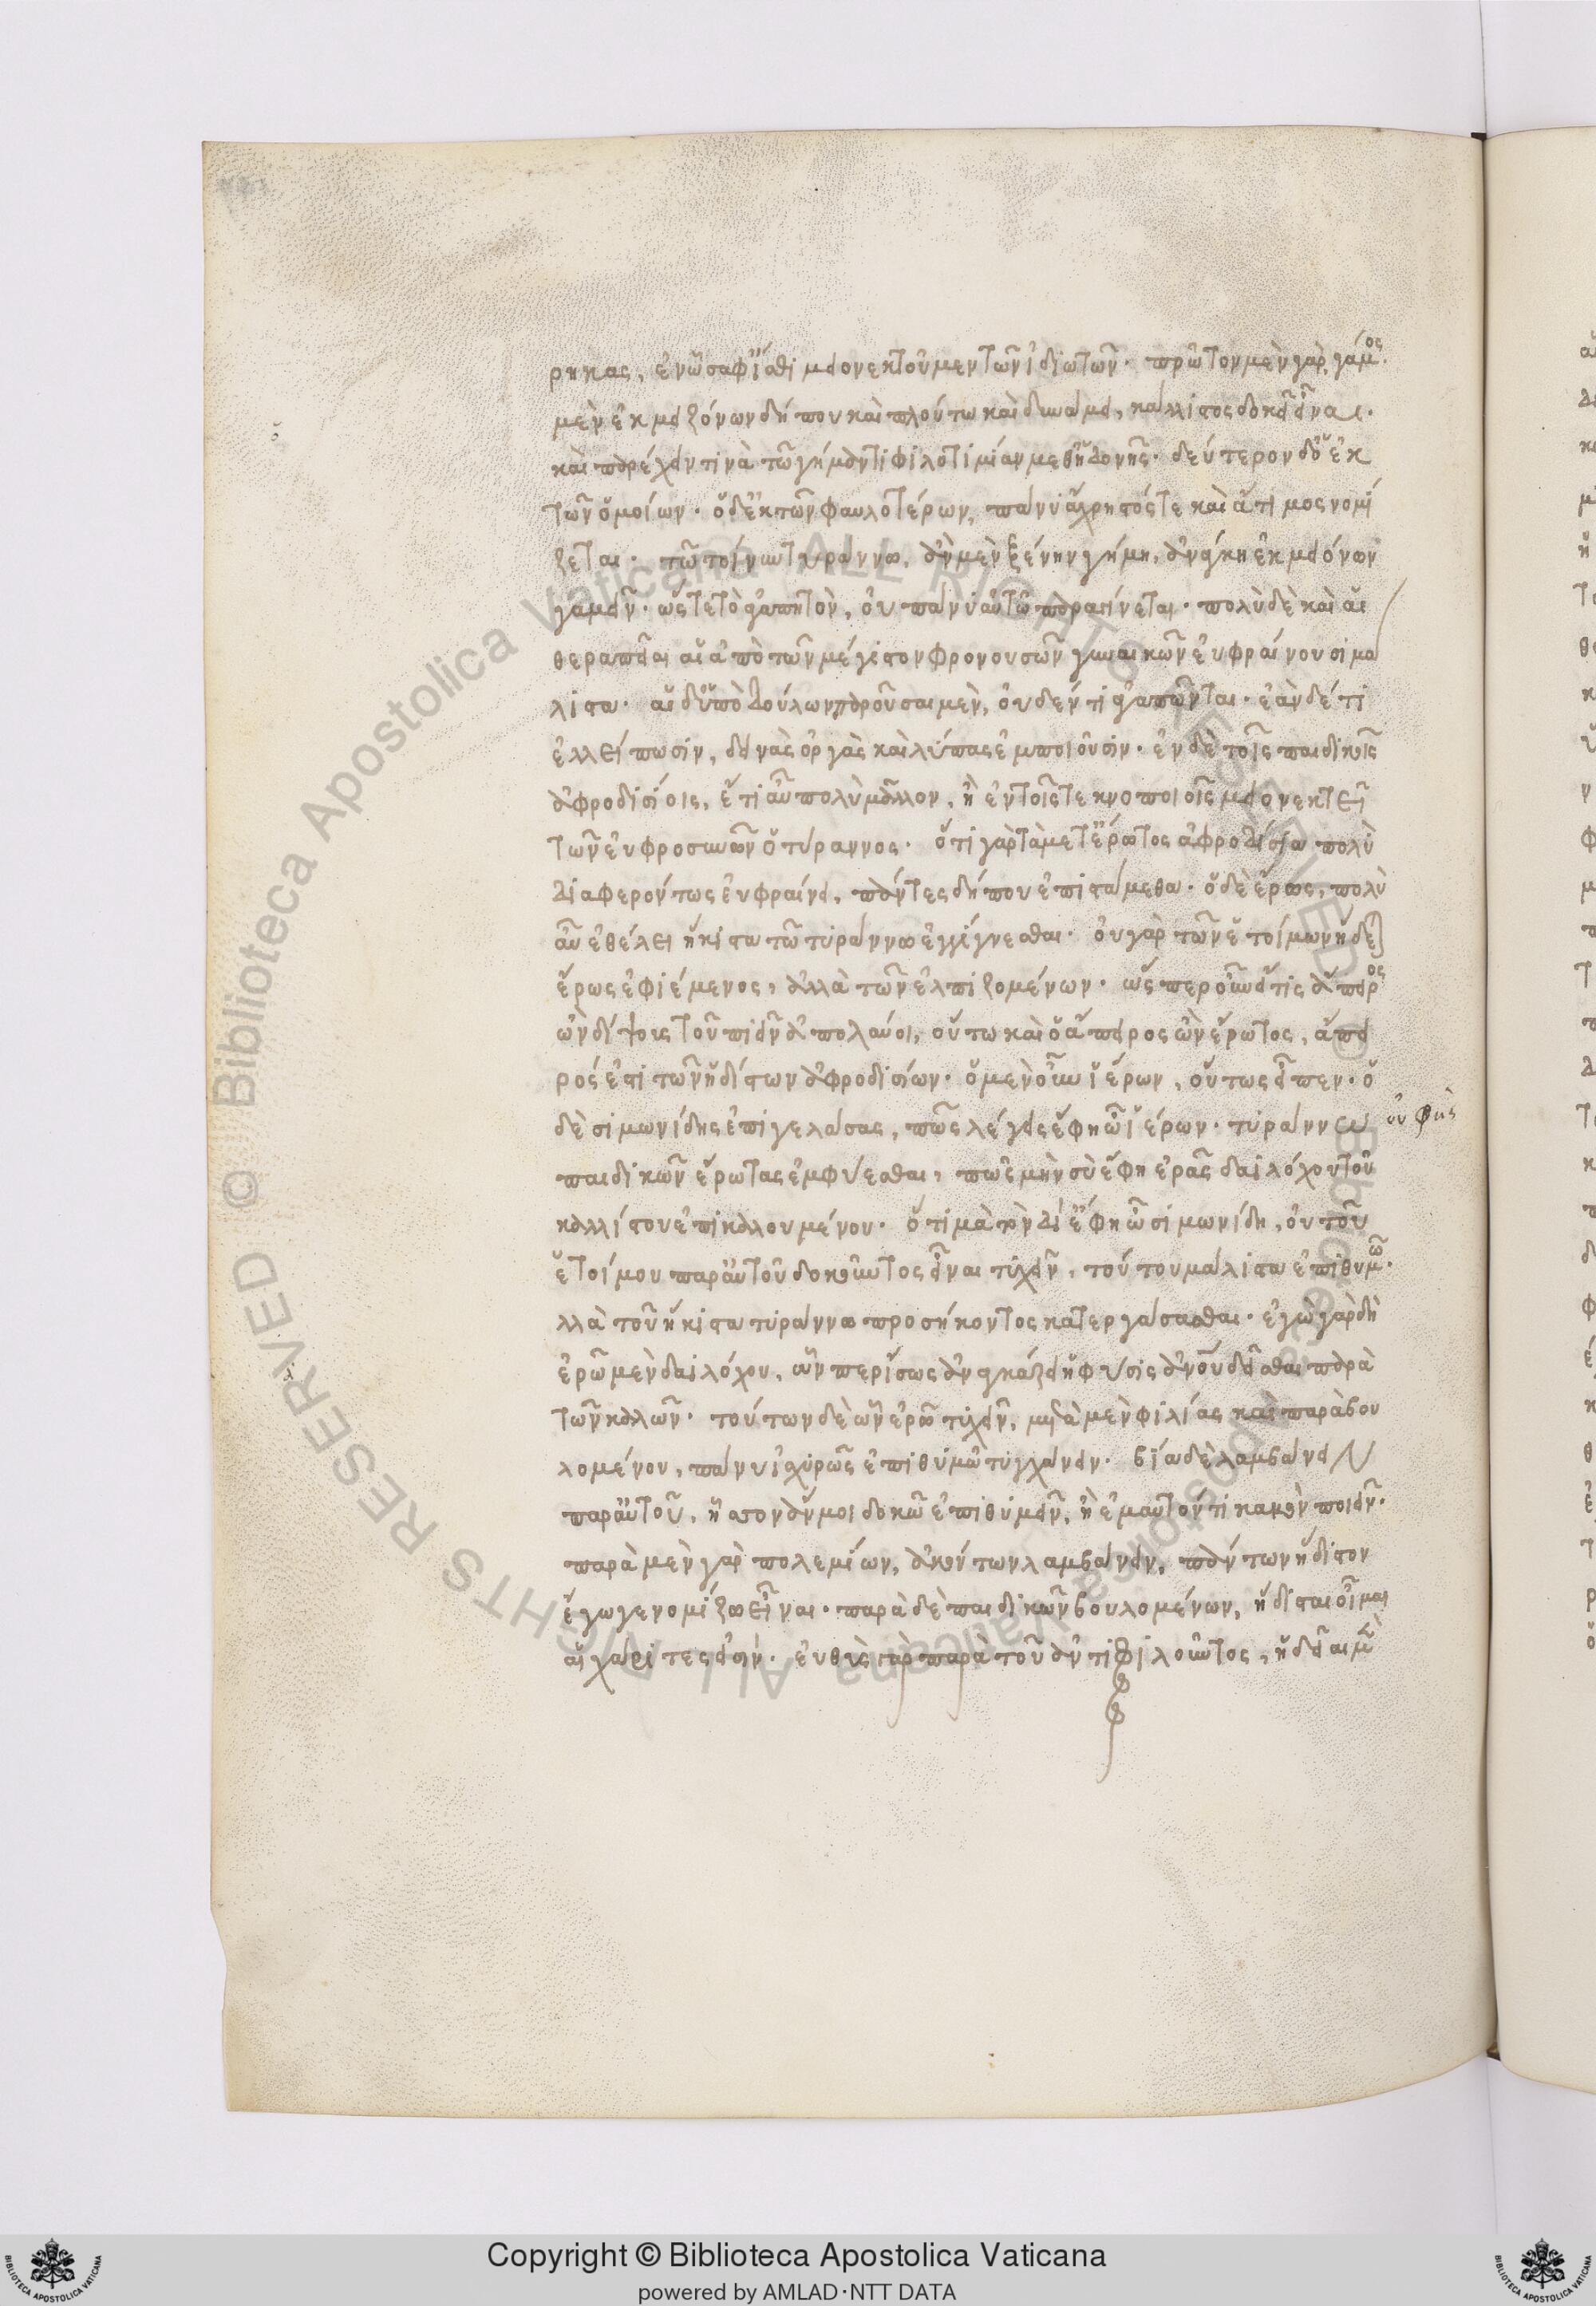 ρηκας, ἐν ὧ σάφ' ἴσθι μειονεκτοῦμεν τῶν ἰδιωτῶν· πρῶτον μὲν γὰρ, γάμος
μὲν ἐκ μειζόνων δήπου καὶ πλούτω καὶ δυνάμει, κάλλιστος δοκεῖ εἶναι·
καὶ παρέχειν τινὰ τῶ γήμαντι φιλοτιμίαν μεθ' ἡδονῆς· δεύτερον δ' ὁ ἐκ
τῶν ὁμοίων· ὁ δ' ἐκ τῶν φαυλοτέρων, πάνυ ἄχρηστός τε καὶ ἄτιμος νομί
ζεται· τῶ τοίνυν τυράννω, ἂν μὲν ξένην γήμη, ἀνάγκη ἐκ μειόνων
γαμεῖν· ὥστε τὸ ἀγαπητὸν, οὐ πάνυ αὐτῶ παραγίνεται· πολὺ δὲ καὶ αἱ
θεραπεῖαι αἱ ἀπὸ τῶν μέγιστον φρονουσῶν γυναικῶν εὐφραίνουσι μα
λιστα· αἱ δ' ὑπὸ δούλων παροῦσαι μὲν, οὐδέν τι ἀγαπῶνται· ἐὰν δέ τι
ἐλλείπωσιν, δεινὰς ὀργὰς καὶ λύπας ἐμποιοῦσιν· ἐν δὲ τοῖς παιδικοῖς
ἀφροδισίοις, ἔτι αὖ πολὺ μᾶλλον, ἢ ἐν τοῖς τεκνοποιοῖς μειονεκτεῖ
τῶν εὐφροσυνῶν ὁ τύραννος· ὅτι γὰρ τὰ μετ' ἔρωτος ἀφροδίσια πολὺ
διαφερόντως εὐφραίνει, πάντες δήπου ἐπιστάμεθα· ὁ δὲ ἔρως, πολὺ
αὖ ἐθέλει ἥκιστα τῶ τυράννω ἐγγίγνεσθαι· οὐ γὰρ τῶν ἑτοίμων ἥδε
ἔρως ἐφιέμενος, ἀλλὰ τῶν ἐλπιζομένων· ὥσπερ οὖν εἴ τις ἄπειρος
ὢν δίψους τοῦ πιεῖν ἀπολαύοι, οὕτω καὶ ὁ ἄπειρος ὢν ἔρωτος, ἄπει
ρός ἐστι τῶν ἡδίστων ἀφροδισίων· ὁ μὲν οὖν ἱέρων, οὕτως εἶπεν· ὁ
δὲ σιμωνίδης ἐπιγελάσας, πῶς λέγεις ἔφη ὦ ἱέρων· τυράννω οὐ φὴς
παιδικῶν ἔρωτας ἐμφύεσθαι, πῶς μὴν σὺ ἔφη ἐρᾶς δαϊλόχου τοῦ
καλλίστου ἐπικαλουμένου· ὅτι μὰ τὸν δί' ἔφη ὦ σιμωνίδη, οὐ τοῦ
ἑτοίμου παρ' αὐτοῦ δοκοῦντος εἶναι τυχεῖν, τούτου μάλιστα ἐπιθυμῶ·
λλὰ τοῦ ἥκιστα τυράννω προσήκοντος κατεργάσασθαι· ἐγὼ γὰρ δὴ
ἐρῶ μὲν δαϊλόχου, ὧνπερ ἴσως ἀναγκάζει ἡ φύσις ἀνοῦ δεῖσθαι παρὰ
τῶν καλῶν· τούτων δὲ ὧν ἐρῶ τυχεῖν, μετὰ μὲν φιλίας καὶ παρὰ βου
λομένου, πάνυ ἰσχυρῶς ἐπιθυμῶ τυγχάνειν· βία δὲ λαμβάνειν
παρ' αὐτοῦ, ἧσσον ἄν μοι δοκῶ ἐπιθυμεῖν, ἢ ἐμαυτόν τι κακὸν ποιεῖν·
παρὰ μὲν γὰρ πολεμίων, ἀκόντων λαμβάνειν, πάντων ἥδιστον
ἔγωγε νομίζω εἶναι· παρὰ δὲ παιδικῶν βουλομένων, ἥδισται οἶμαι
αἱ χάριτες εἰσίν· εὐθὺς γὰρ παρὰ τοῦ ἀντιφιλοῦντος, ἡδεῖαι μὲν